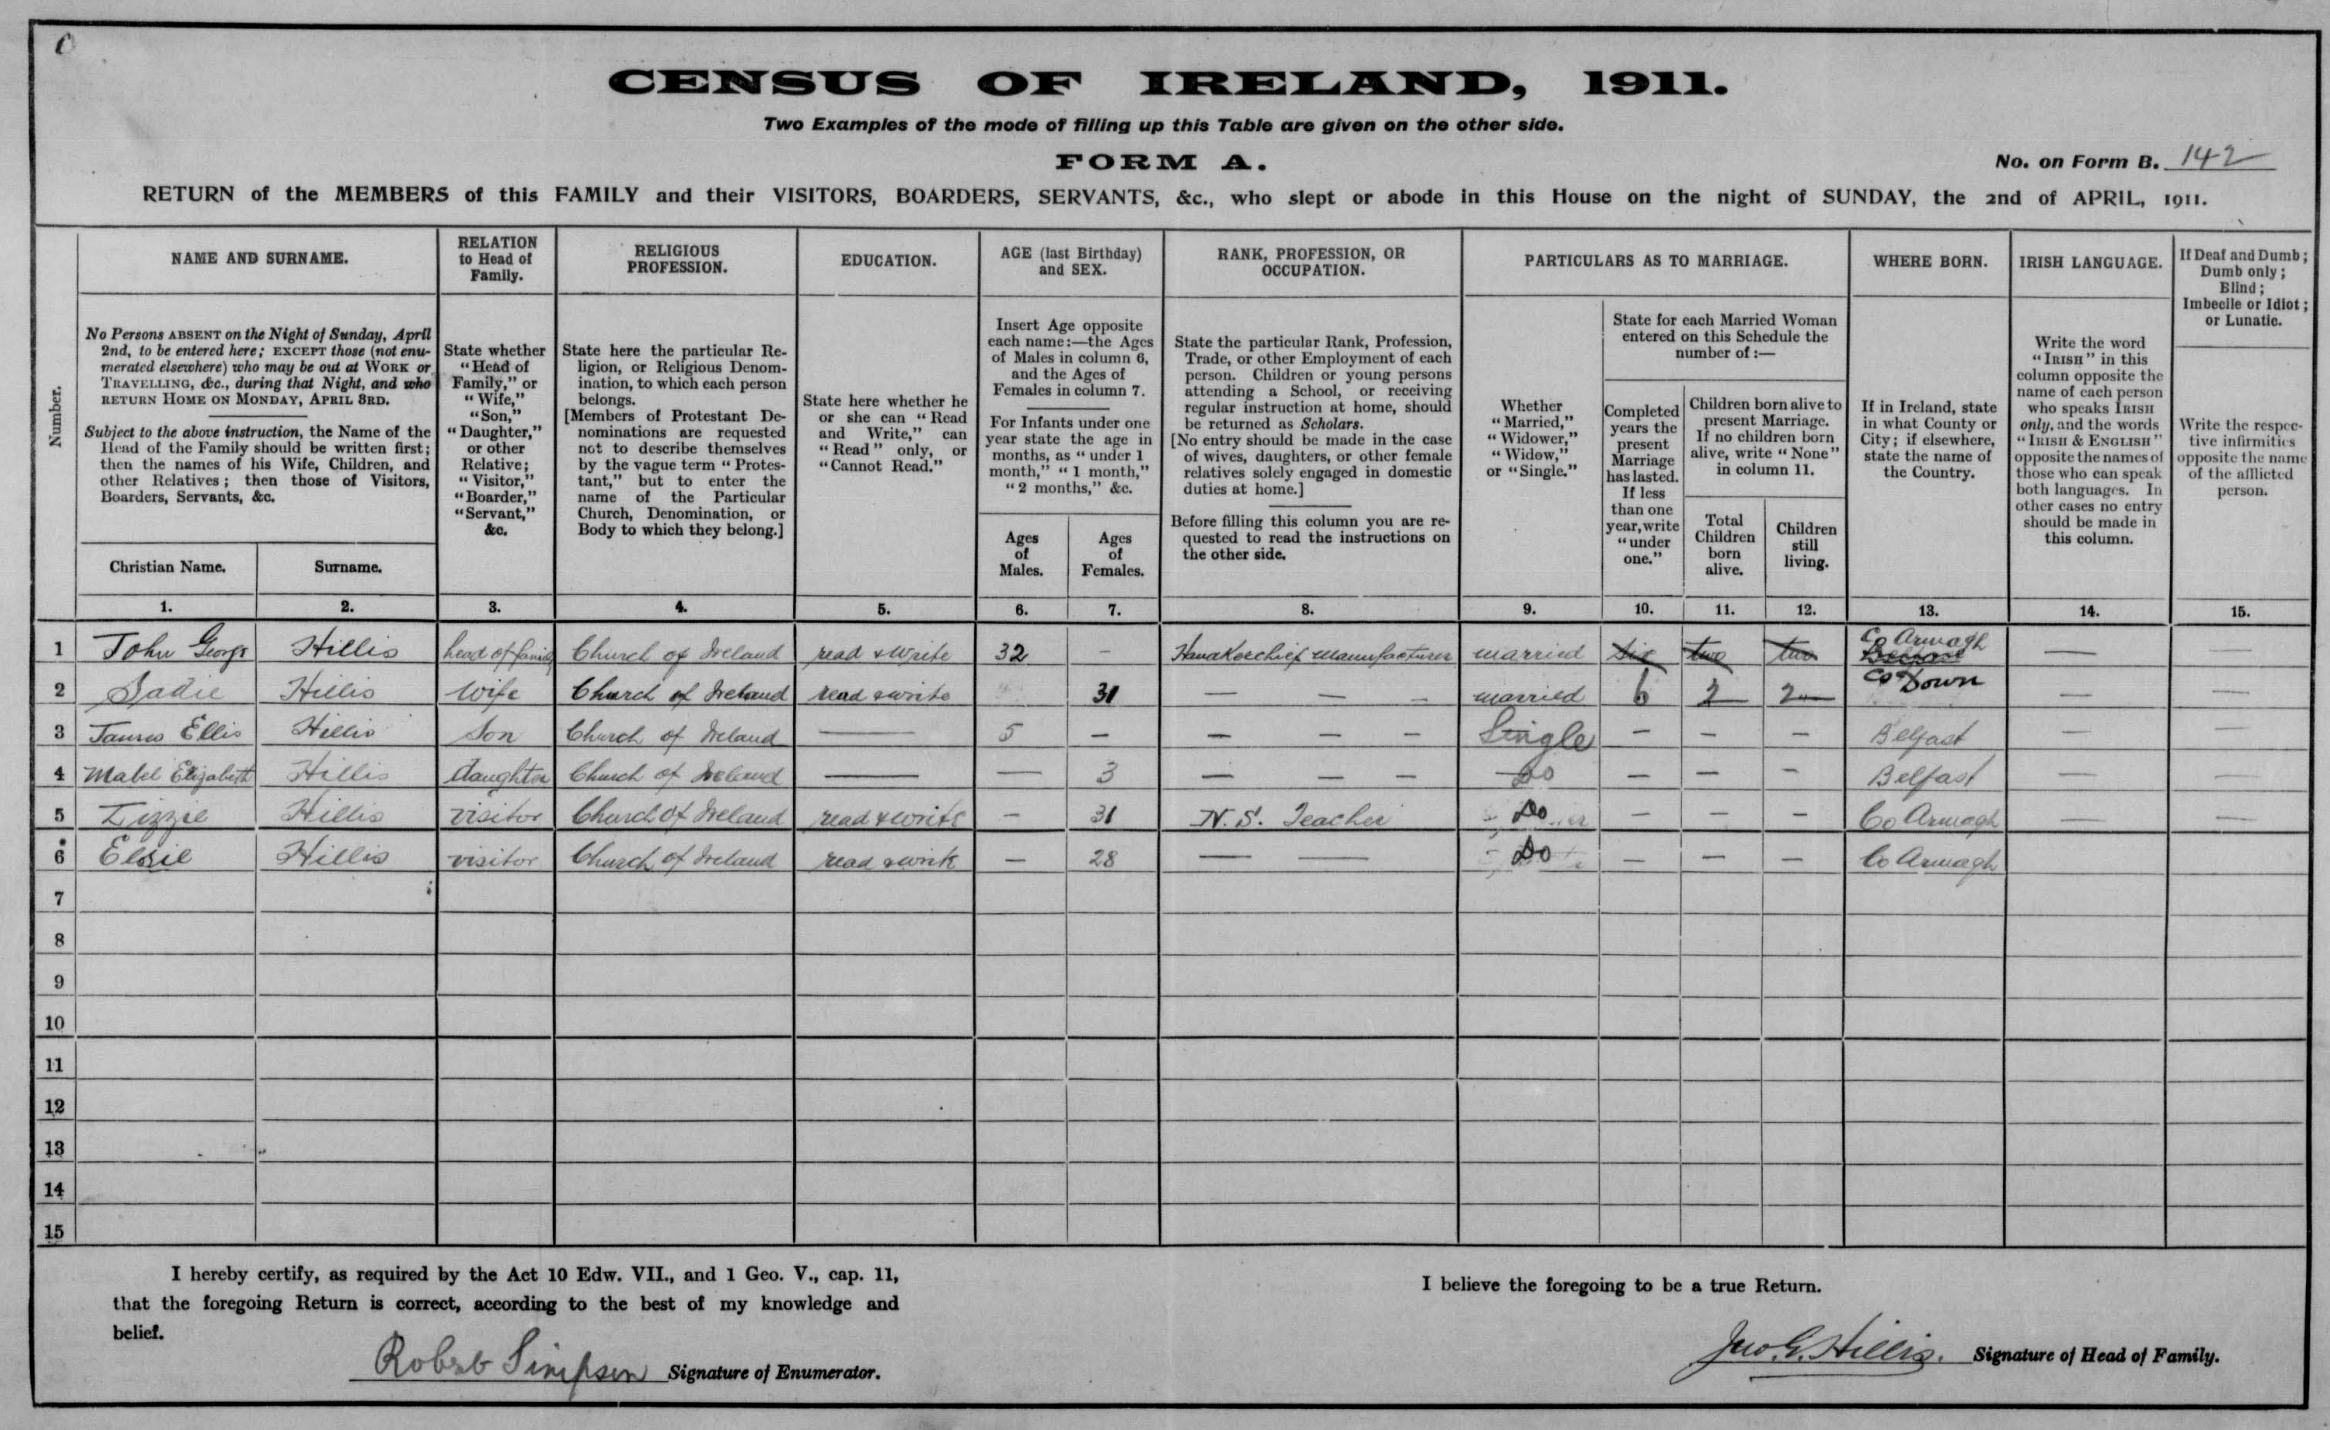 CENSUS OF IRELAND, 1911.
Two Examples of the mode of filling up this Table are given on the other side.
FORM A.
No. on Form B. 142
RETURN of the MEMBERS of this FAMILY and their VISITORS, BOARDERS, SERVANTS, &c., who slept or abode in this House on the night of SUNDAY, the 2nd of APRIL, 1911.
Number.
NAME AND SURNAME.
No Persons ABSENT on the Night of Sunday, April
2nd, to be entered here; EXCEPT those (not enu-
merated elsewhere) who may be out at WORK or
TRAVELLING, &c., during that Night, and who
RETURN HOME ON MONDAY, APRIL 3RD.
Subject to the above instruction, the Name of the
Head of the Family should be written first;
then the names of his Wife, Children, and
other Relatives; then those of Visitors,
Boarders, Servants, &c.
Christian Name.
Surname.
RELATION
to Head of
Family.
State whether
"Head of
Family," or
"Wife,"
"Son,"
"Daughter,"
or other
Relative;
"Visitor,"
"Boarder,"
"Servant,"
&c.
RELIGIOUS
PROFESSION.
State here the particular Re-
ligion, or Religious Denom-
ination, to which each person
belongs.
[Members of Protestant De-
nominations are requested
not to describe themselves
by the vague term "Protes-
tant," but to enter the
name of the Particular
Church, Denomination, or
Body to which they belong.]
EDUCATION.
State here whether he
or she can "Read
and Write," can
"Read" only, or
"Cannot Read."
AGE (last Birthday)
and SEX.
Insert Age opposite
each name:—the Ages
of Males in column 6,
and the Ages of
Females in column 7.
For Infants under one
year state the age in
months, as "under 1
month," "1 month,"
"2 months," &c.
Ages
of
Males.
Ages
of
Females.
RANK, PROFESSION, OR
OCCUPATION.
State the particular Rank, Profession,
Trade, or other Employment of each
person. Children or young persons
attending a School, or receiving
regular instruction at home, should
be returned as Scholars.
[No entry should be made in the case
of wives, daughters, or other female
relatives solely engaged in domestic
duties at home.]
Before filling this column you are re-
quested to read the instructions on
the other side.
PARTICULARS AS TO MARRIAGE.
Whether
"Married,"
"Widower,"
"Widow,"
or "Single."
State for each Married Woman
entered on this Schedule the
number of:—
Completed
years the
present
Marriage
has lasted.
If less
than one
year, write
"under
one."
Children born alive to
present Marriage.
If no children born
alive, write "None"
in column 11.
Total
Children
born
alive.
Children
still
living.
WHERE BORN.
If in Ireland, state
in what County or
City; if elsewhere,
state the name of
the Country.
IRISH LANGUAGE.
Write the word
"IRISH" in this
column opposite the
name of each person
who speaks IRISH
only, and the words
"IRISH & ENGLISH"
opposite the names of
those who can speak
both languages. In
other cases no entry
should be made in
this column.
If Deaf and Dumb;
Dumb only;
Blind;
Imbecile or Idiot;
or Lunatic.
Write the respec-
tive infirmities
opposite the name
of the afflicted
person.
1. 2. 3. 4. 5. 6. 7. 8. 9. 10. 11. 12. 13. 14. 15.
1 John George Hillis head of family Church of Ireland read & write 32 – Handkerchief manufacturer married six two two Co Armagh — —
2 Sadie Hillis Wife Church of Ireland read & write 31 — — – married 6 2 2 Co Down — —
3 James Ellis Hillis Son Church of Ireland — 5 – – – – Single – – – Belfast — —
4 Mabel Elizabeth Hillis daughter Church of Ireland — — 3 — – – Do – – – Belfast — —
5 Lizzie Hillis visitor Church of Ireland read & write – 31 N. S. Teacher Do – – – Co Armagh — —
6 Elsie Hillis visitor Church of Ireland read & write – 28 — — Do – – – Co Armagh
7
8
9
10
11
12
13
14
15
I hereby certify, as required by the Act 10 Edw. VII., and 1 Geo. V., cap. 11,
that the foregoing Return is correct, according to the best of my knowledge and
belief.
Robert Simpson Signature of Enumerator.
I believe the foregoing to be a true Return.
Jno. G. Hillis. Signature of Head of Family.